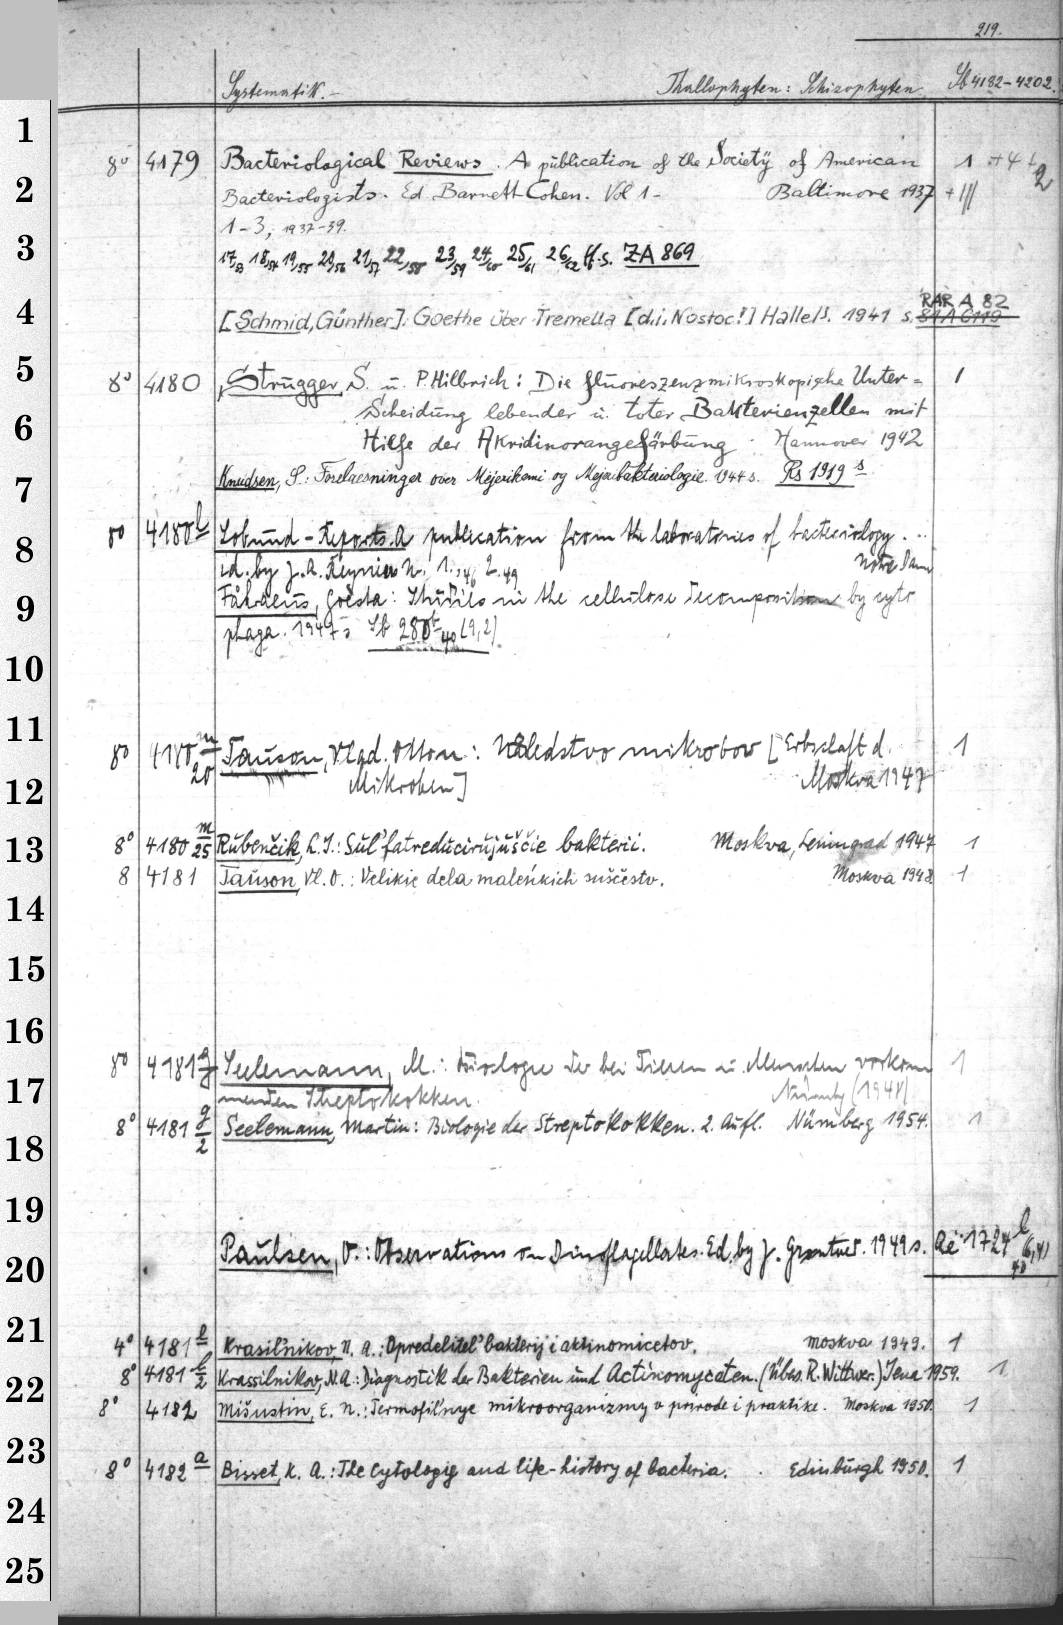 219.
Systematik.- Thallophyten: Schizophyten. Sb 4182-4202.
1
8° 4179 Bacteriological Reviews. A publication of the Society of American 1 + 4 +
2
Bacteriologists. Ed. Barnett Cohen. Vol 1- Baltimore 1937 + III 2
1-3, 1937-39.
3
17/53 18/54 19/55 20/56 21/57 22/58 23/59 24/60 25/61 26/62 ff. s. ZA 869
4
RAR A 82
[Schmid, Günther]: Goethe über Tremella [d.i. Nostoc!] Halle/S. 1941 s. 81 A 6119
5
8° 4180 Strugger, S. u. P. Hilbrich: Die fluoreszenzmikroskopische Unter= 1
scheidung lebender u. toter Bakterienzellen mit
6
Hilfe der Akridinorangefärbung. Hannover 1942
7
Knudsen, S.: Forelaesninger over Mejerikemi og Mejeribakteriologie. 1944 s. Rs 1919 s
8
8° 4180 l Lobund-Reports. A publication from the laboratories of bacteriology...
ed. by J. A. Reyniers N. 1.,46 2.49 Notre Dame
9
Fåhraeus, Gösta: Studies in the cellulose decomposition by cyto
phaga. 1947 s Sb 280 40 (9,2)
10
11
8° 4180 m/20 Tauson, Vlad. Otton.: Nasledstvo mikrobov [Erbschaft d. 1
12
Mikroben] Moskva 1947
13
8° 4180 m/25 Rubenčik, L. I.: Sul'fatreducirujuščie bakterii. Moskva, Leningrad 1947 1
8 4181 Tauson, Vl. O.: Velikie dela malen'kich suščestv. Moskva 1948 1
14
15
16
8° 4181 g Seelemann, M.: Biologie der bei Tieren u. Menschen vorkom 1
17
menden Streptokokken. Nürnbg [1948]
18
8° 4181 g/2 Seelemann, Martin: Biologie der Streptokokken. 2. Aufl. Nürnberg 1954. 1
19
20
Paulsen, O.: Observations on Dinoflagellates. Ed. by J. Grøntved. 1949 s. Ae 1724 l 40 (6,4)
21
4° 4181 l Krasil'nikov, N. A.: Opredelitel' bakterij i aktinomicetov. Moskva 1949. 1
22
8° 4181 l/2 Krassilnikov, N. A.: Diagnostik der Bakterien und Actinomyceten. (Übers. R. Wittwer.) Jena 1959. 1
8° 4182 Mišustin, E. N.: Termofil'nye mikroorganizmy v prirode i praktike. Moskva 1950. 1
23
8° 4182 a Bisset, K. A.: The Cytology and life-history of bacteria. Edinburgh 1950. 1
24
25